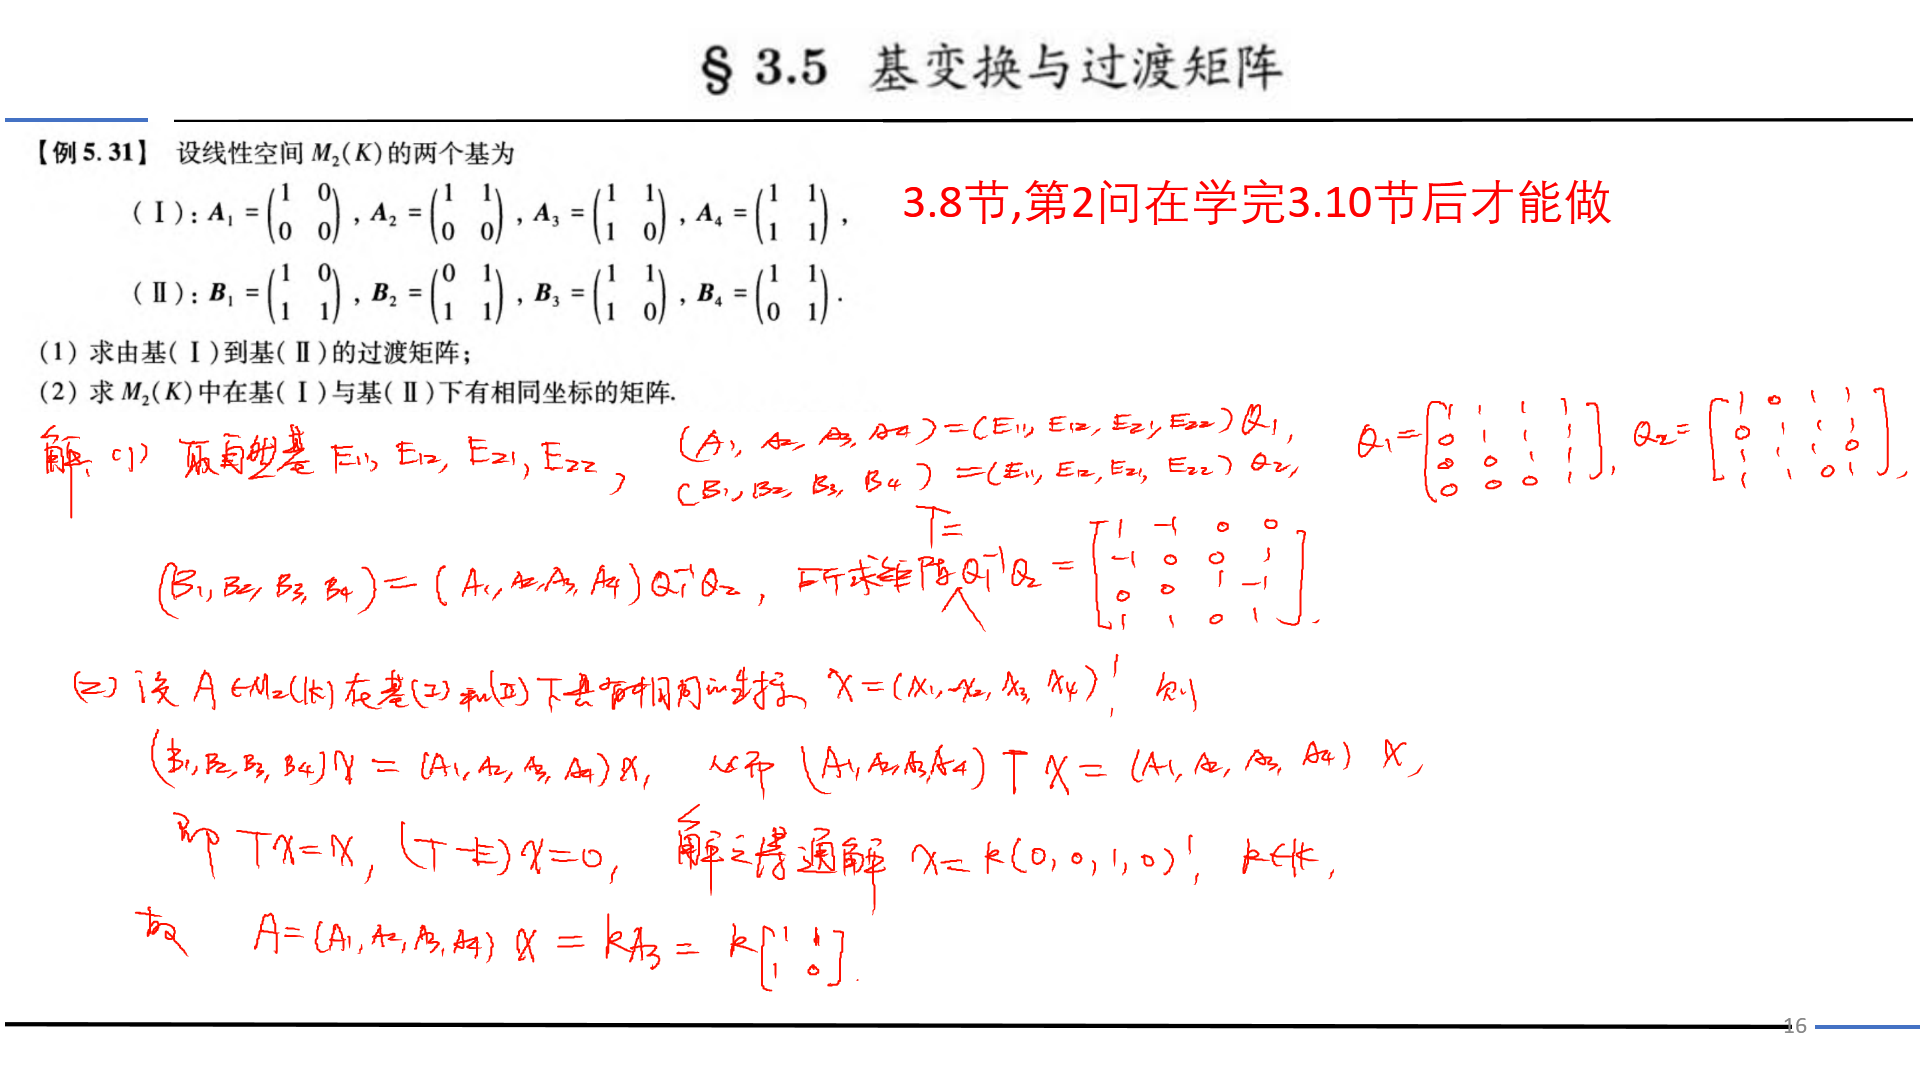 § 3.5 基变换与过渡矩阵
【例 5.31】 设线性空间 M₂(K)的两个基为
(Ⅰ): A₁ = (1 0; 0 0), A₂ = (1 1; 0 0), A₃ = (1 1; 1 0), A₄ = (1 1; 1 1),
3.8节,第2问在学完3.10节后才能做
(Ⅱ): B₁ = (1 0; 1 1), B₂ = (0 1; 1 1), B₃ = (1 1; 1 0), B₄ = (1 1; 0 1).
(1) 求由基(Ⅰ)到基(Ⅱ)的过渡矩阵;
(2) 求 M₂(K)中在基(Ⅰ)与基(Ⅱ)下有相同坐标的矩阵.
解: (1) 取自然基 E₁₁, E₁₂, E₂₁, E₂₂, (A₁, A₂, A₃, A₄) = (E₁₁, E₁₂, E₂₁, E₂₂) Q₁, Q₁ = [1 1 1 1; 0 1 1 1; 0 0 1 1; 0 0 0 1], Q₂ = [1 0 1 1; 0 1 1 1; 1 1 1 0; 1 1 0 1],
(B₁, B₂, B₃, B₄) = (E₁₁, E₁₂, E₂₁, E₂₂) Q₂,
(B₁, B₂, B₃, B₄) = (A₁, A₂, A₃, A₄) Q₁⁻¹Q₂, 所求矩阵 T = Q₁⁻¹Q₂ = [1 -1 0 0; -1 0 0 1; 0 0 1 -1; 1 1 0 1].
(2) 设 A∈M₂(K) 在基(Ⅰ)和(Ⅱ)下具有相同的坐标 X = (x₁, x₂, x₃, x₄)', 则
(B₁, B₂, B₃, B₄) X = (A₁, A₂, A₃, A₄) X, 从而 (A₁, A₂, A₃, A₄) T X = (A₁, A₂, A₃, A₄) X,
即 TX = X, (T-E)X = 0, 解之得通解 X = k(0, 0, 1, 0)', k∈K,
故 A = (A₁, A₂, A₃, A₄) X = kA₃ = k[1 1; 1 0].
16